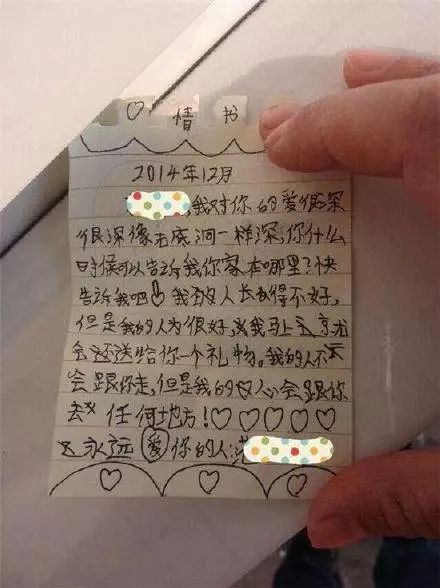 ♡ 情书
2014年12月
,我对你的爱很深
很深像无底洞一样深,你什么
时候可以告诉我你家在哪里?快
告诉我吧! 我人长得不好,
但是我的人为很好,我马上
会还送给你一个礼物。我的人不
会跟你走,但是我的心会跟你
去 任何地方!♡♡♡♡♡
永远爱你的人: